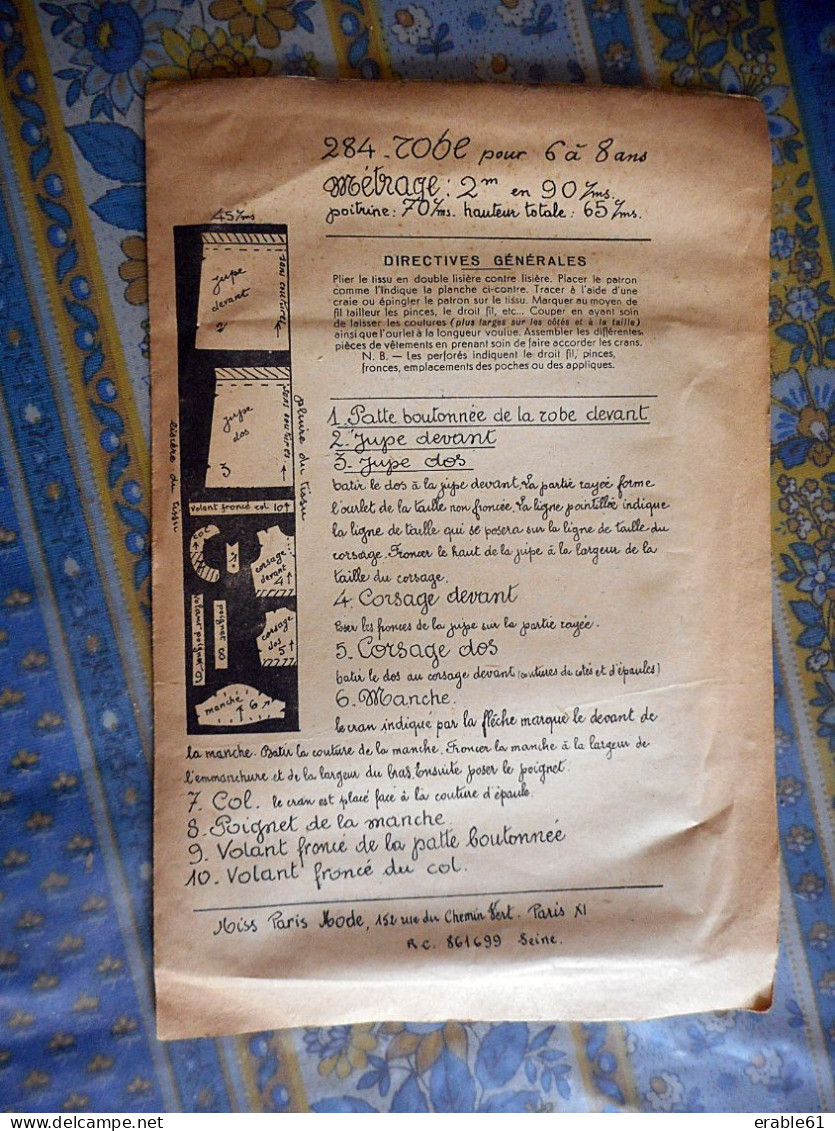 284_robe pour 6 à 8 ans
Métrage: 2m en 90 c/ms.
poitrine: 70 c/ms. hauteur totale: 65 c/ms.
45 c/ms
DIRECTIVES GÉNÉRALES
Plier le tissu en double lisière contre lisière. Placer le patron
comme l'indique la planche ci-contre. Tracer à l'aide d'une
craie ou épingler le patron sur le tissu. Marquer au moyen de
fil tailleur les pinces, le droit fil, etc... Couper en ayant soin
de laisser les coutures (plus larges sur les côtés et à la taille)
ainsi que l'ourlet à la longueur voulue. Assembler les différentes
pièces de vêtements en prenant soin de faire accorder les crans.
N. B. — Les perforés indiquent le droit fil, pinces,
fronces, emplacements des poches ou des appliques.
jupe
devant
2
sans couture
jupe
dos
3
sans coutures
lisière du tissu
pliure du tissu
volant froncé col 10
col
corsage
devant
4
volant poignet 9
poignet 8
corsage
dos
5
manche 6
1_Patte boutonnée de la robe devant
2_Jupe devant
3_Jupe dos
batir le dos à la jupe devant. La partie rayée forme
l'ourlet de la taille non froncée. La ligne pointillée indique
la ligne de taille qui se posera sur la ligne de taille du
corsage. Froncer le haut de la jupe à la largeur de la
taille du corsage.
4_Corsage devant
Poser les fronces de la jupe sur la partie rayée.
5_Corsage dos
batir le dos au corsage devant (coutures de cotés et d'épaules)
6_Manche.
le cran indiqué par la flêche marque le devant de
la manche. Batir la couture de la manche. Froncer la manche à la largeur de
l'emmanchure et de la largeur du bras. Ensuite poser le poignet.
7_Col. le cran est placé face à la couture d'épaule.
8_Poignet de la manche.
9_Volant froncé de la patte boutonnée
10_Volant froncé du col.
Miss Paris Mode, 152 rue du Chemin Vert. Paris XI
R.C. 861699 Seine.
erable61